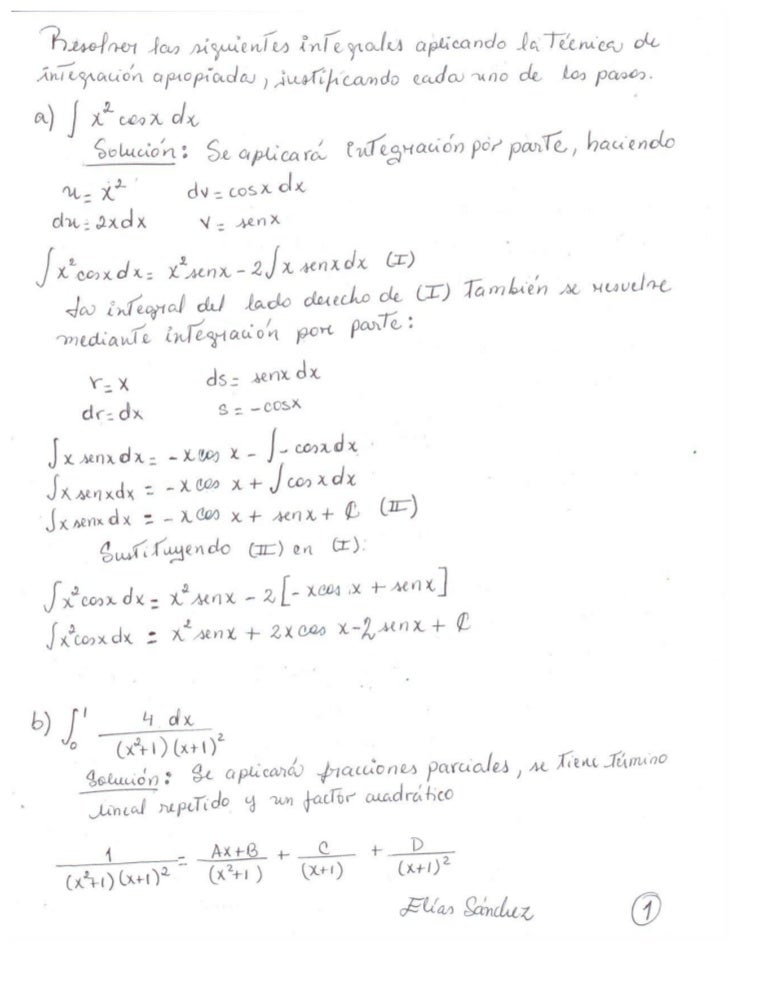 Resolver las siguientes integrales aplicando la Técnica de
integración apropiada, justificando cada uno de los pasos.
a) ∫ x² cosx dx
Solución: Se aplicará integración por parte, haciendo
u = x² dv = cosx dx
du = 2xdx v = senx
∫x²cosxdx = x²senx - 2∫x senxdx (I)
La integral del lado derecho de (I) También se resuelve
mediante integración por parte:
r = x ds = senx dx
dr = dx s = -cosx
∫x senxdx = -xcos x - ∫-cosxdx
∫x senxdx = -xcos x + ∫cosxdx
∫x senxdx = -xcos x + senx + C (II)
Sustituyendo (II) en (I):
∫x²cosxdx = x²senx - 2[-xcos x + senx]
∫x²cosxdx = x²senx + 2xcos x - 2senx + C
b) ∫₀¹ 4 dx / (x²+1)(x+1)²
Solución: Se aplicará fracciones parciales, se Tiene Término
lineal repetido y un factor cuadrático
1/(x²+1)(x+1)² = Ax+B/(x²+1) + C/(x+1) + D/(x+1)²
Elías Sánchez 1